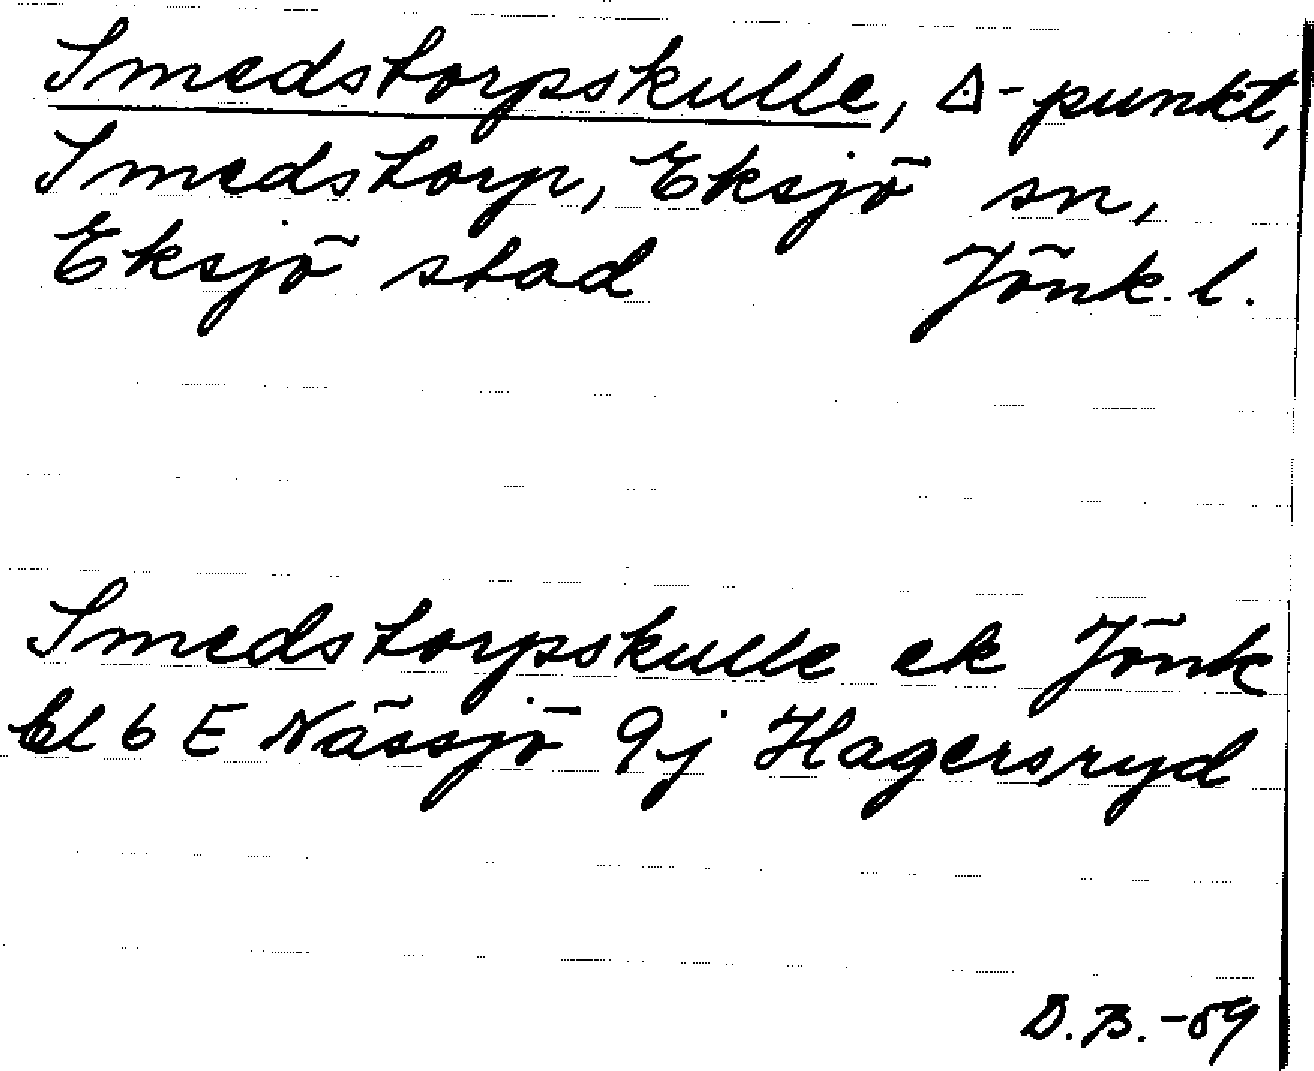 Smedstorpskulle, △-punkt,
Smedstorp, Eksjö sn,
Eksjö stad Jönk. l.
Smedstorpskulle ek Jönk
bl 6 E Nässjö 9j Hagersryd
D.B.-59